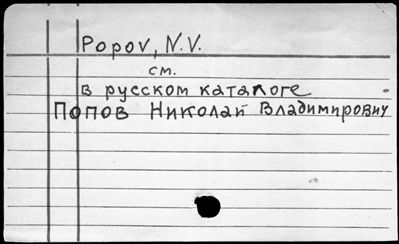 Popov, N.V.
см.
в русском каталоге
Попов Николай Владимирович